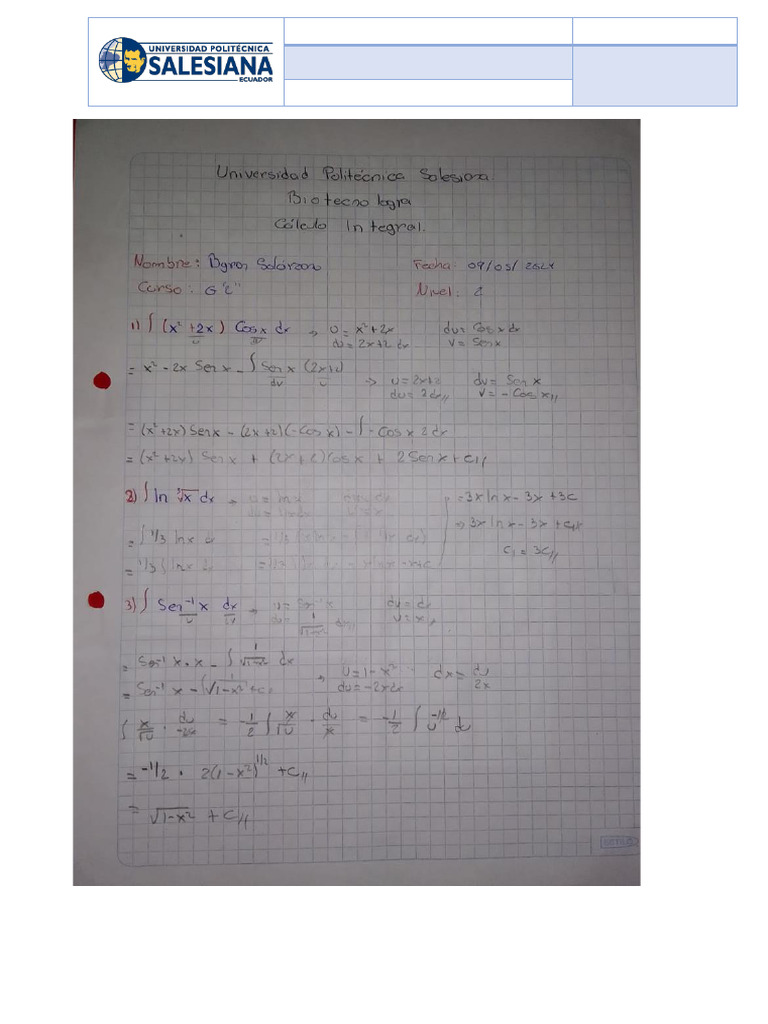 UNIVERSIDAD POLITÉCNICA
SALESIANA
ECUADOR
Universidad Politécnica Salesiana
Biotecnología
Cálculo Integral.
Nombre: Byron Solórzano Fecha: 09/05/2024
Curso: G "2" Nivel: 2
1) ∫ (x² + 2x) Cos x dx → u = x² + 2x dv = Cos x dx
u dv du = 2x + 2 dx v = Sen x
= x² - 2x Sen x - ∫ Sen x (2x+2) → u = 2x+2 dv = Sen x
dv u du = 2dx// v = - Cos x//
= (x² + 2x) Sen x - (2x + 2)(-Cos x) - ∫ - Cos x 2 dx
= (x² + 2x) Sen x + (2x + 2) Cos x + 2 Sen x + C//
2) ∫ ln ∛x dx → u = ln x = 3x ln x - 3x + 3C
= ∫ 1/3 ln x dx → 3x ln x - 3x + C₁
= 1/3 ∫ ln x dx C₁ = 3C//
3) ∫ Sen⁻¹ x dx → u = Sen⁻¹ x dv = dx
u dv du = 1/√1-x² dx// v = x//
= Sen⁻¹ x · x - ∫ 1/√1-x² dx
= Sen⁻¹ x - ∫ 1/√1-x² + C₁ → u = 1 - x² dx = du/2x
du = -2x dx
∫ x/√u · du/-2x = -1/2 ∫ x/√u · du/x = -1/2 ∫ u^-1/2 du
= -1/2 · 2(1 - x²)^1/2 + C//
= √1-x² + C//
ESTILO